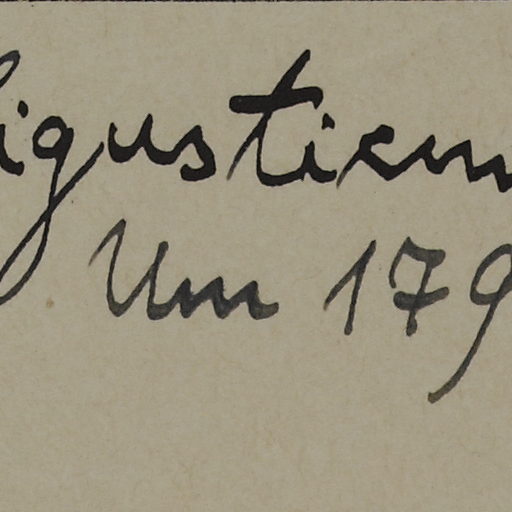 ligusticum
Um 179